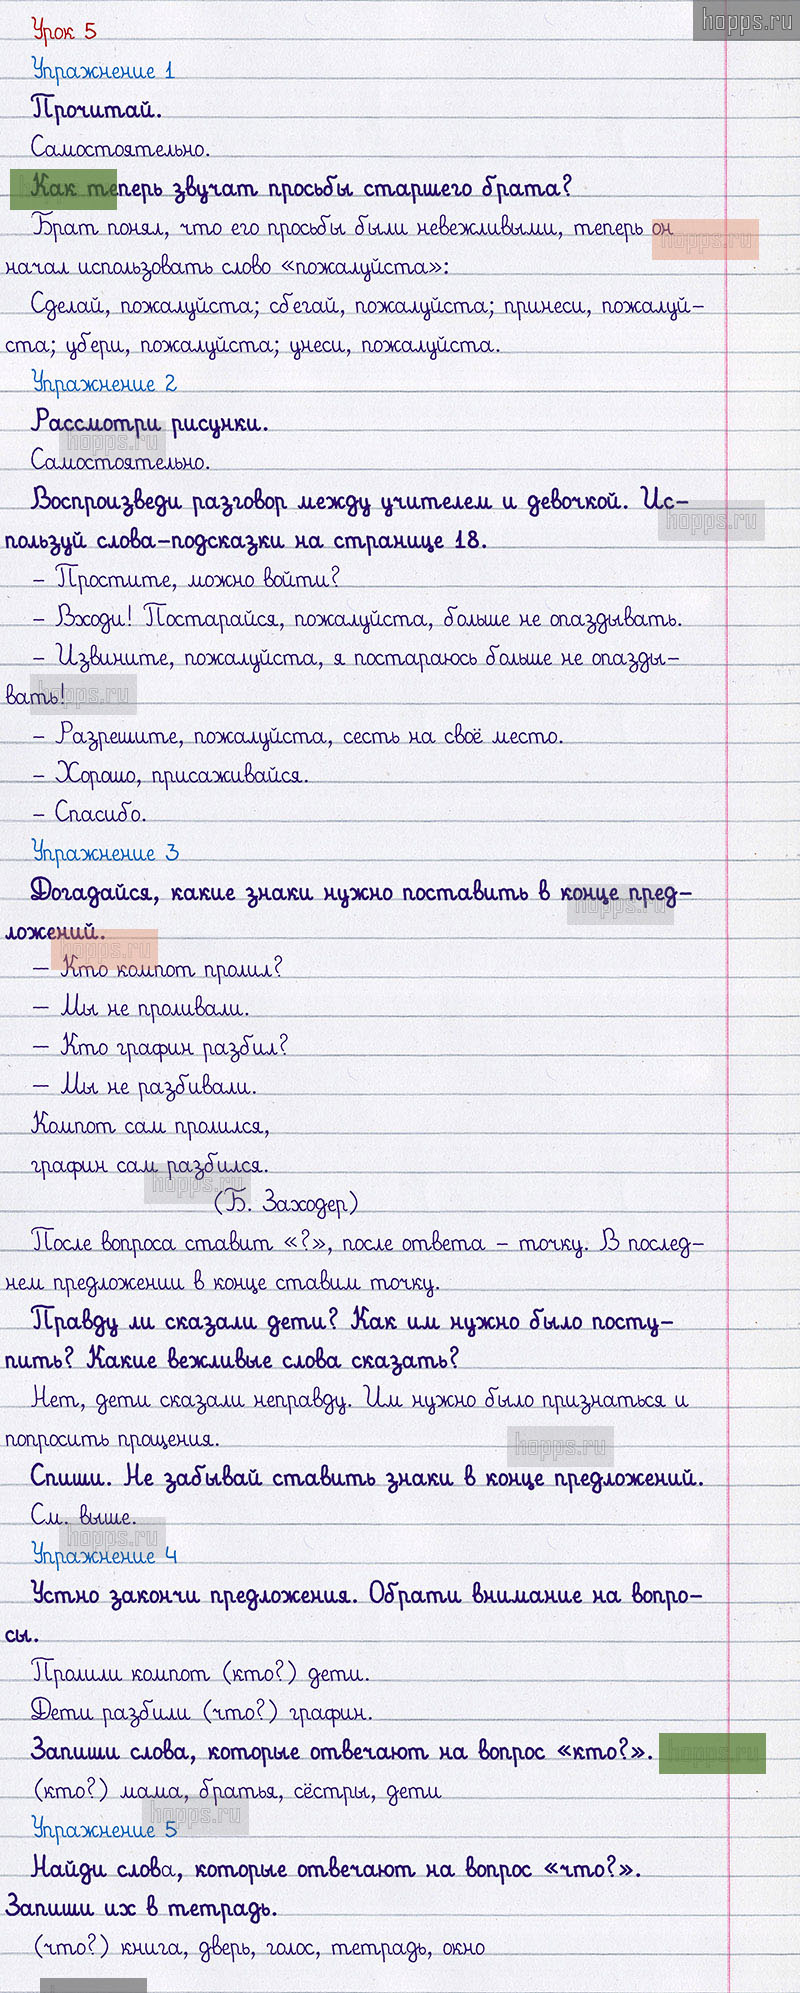 hopps.ru
Урок 5
Упражнение 1
Прочитай.
Самостоятельно.
Как теперь звучат просьбы старшего брата?
Брат понял, что его просьбы были невежливыми, теперь он
hopps.ru
начал использовать слово «пожалуйста»:
Сделай, пожалуйста; сбегай, пожалуйста; принеси, пожалуй-
ста; убери, пожалуйста; унеси, пожалуйста.
Упражнение 2
Рассмотри рисунки.
hopps.ru
Самостоятельно.
Воспроизведи разговор между учителем и девочкой. Ис-
hopps.ru
пользуй слова-подсказки на странице 18.
- Простите, можно войти?
- Входи! Постарайся, пожалуйста, больше не опаздывать.
- Извините, пожалуйста, я постараюсь больше не опазды-
вать!
hopps.ru
- Разрешите, пожалуйста, сесть на своё место.
- Хорошо, присаживайся.
- Спасибо.
Упражнение 3
Догадайся, какие знаки нужно поставить в конце пред-
hopps.ru
ложений.
hopps.ru
— Кто компот пролил?
— Мы не проливали.
— Кто графин разбил?
— Мы не разбивали.
Компот сам пролился,
графин сам разбился.
hopps.ru
(Б. Заходер)
После вопроса ставит «?», после ответа - точку. В послед-
нем предложении в конце ставим точку.
Правду ли сказали дети? Как им нужно было посту-
пить? Какие вежливые слова сказать?
Нет, дети сказали неправду. Им нужно было признаться и
попросить пращения.
hopps.ru
Спиши. Не забывай ставить знаки в конце предложений.
См. выше.
hopps.ru
Упражнение 4
Устно закончи предложения. Обрати внимание на вопро-
сы.
Пролили компот (кто?) дети.
Дети разбили (что?) графин.
Запиши слова, которые отвечают на вопрос «кто?».
hopps.ru
(кто?) мама, братья, сёстры, дети
hopps.ru
Упражнение 5
Найди слова, которые отвечают на вопрос «что?».
Запиши их в тетрадь.
(что?) книга, дверь, голос, тетрадь, окно